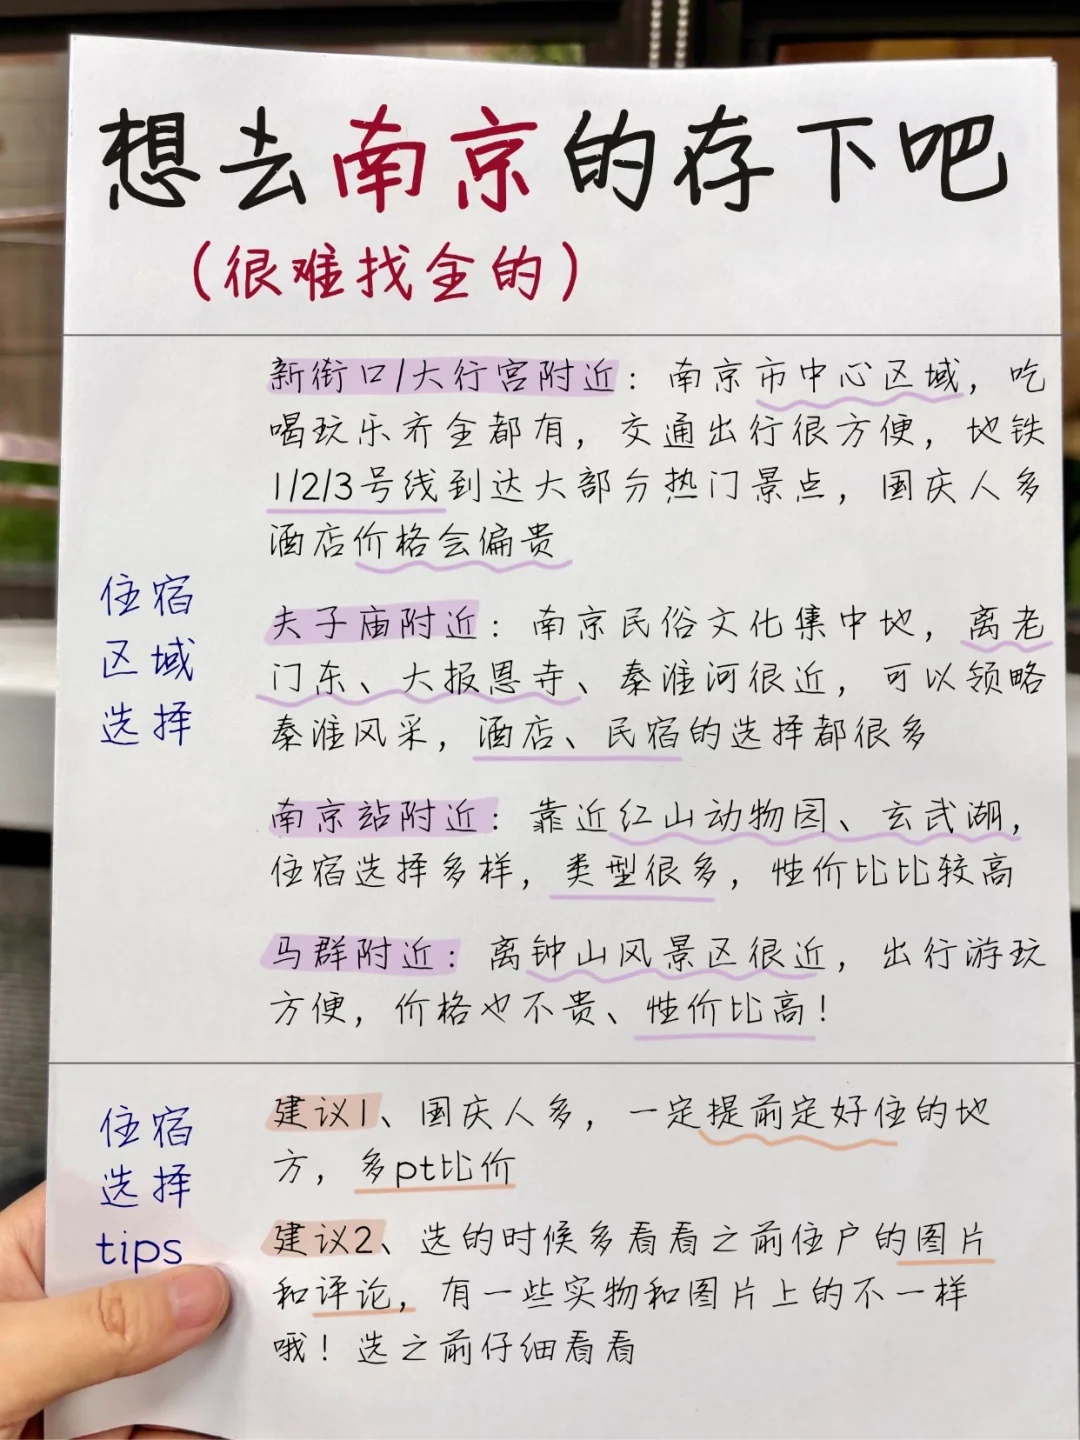 想去南京的存下吧
（很难找全的）
新街口/大行宫附近：南京市中心区域，吃
喝玩乐齐全都有，交通出行很方便，地铁
1/2/3号线到达大部分热门景点，国庆人多
酒店价格会偏贵
住宿
区域
选择
夫子庙附近：南京民俗文化集中地，离老
门东、大报恩寺、秦淮河很近，可以领略
秦淮风采，酒店、民宿的选择都很多
南京站附近：靠近红山动物园、玄武湖，
住宿选择多样，类型很多，性价比比较高
马群附近：离钟山风景区很近，出行游玩
方便，价格也不贵、性价比高！
住宿
选择
tips
建议1、国庆人多，一定提前定好住的地
方，多pt比价
建议2、选的时候多看看之前住户的图片
和评论，有一些实物和图片上的不一样
哦！选之前仔细看看